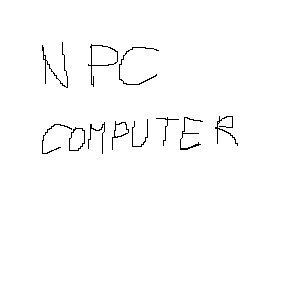 NPC
COMPUTER